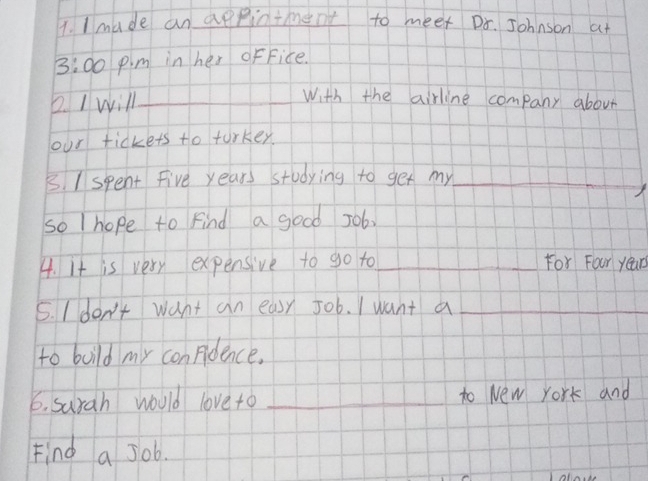 1. I made an appintment to meet Dr. Johnson at
3:00 p.m in her office.
2. I will __________ with the airline company about
our tickets to turkey.
3. I spent Five years studying to get my __________,
so I hope to Find a good Job.
4. It is very expensive to go to __________ For Four years
5. I don't want an easy Job. I want a __________
to build my confidence.
6. Sarah would love to __________ to New York and
Find a Job.